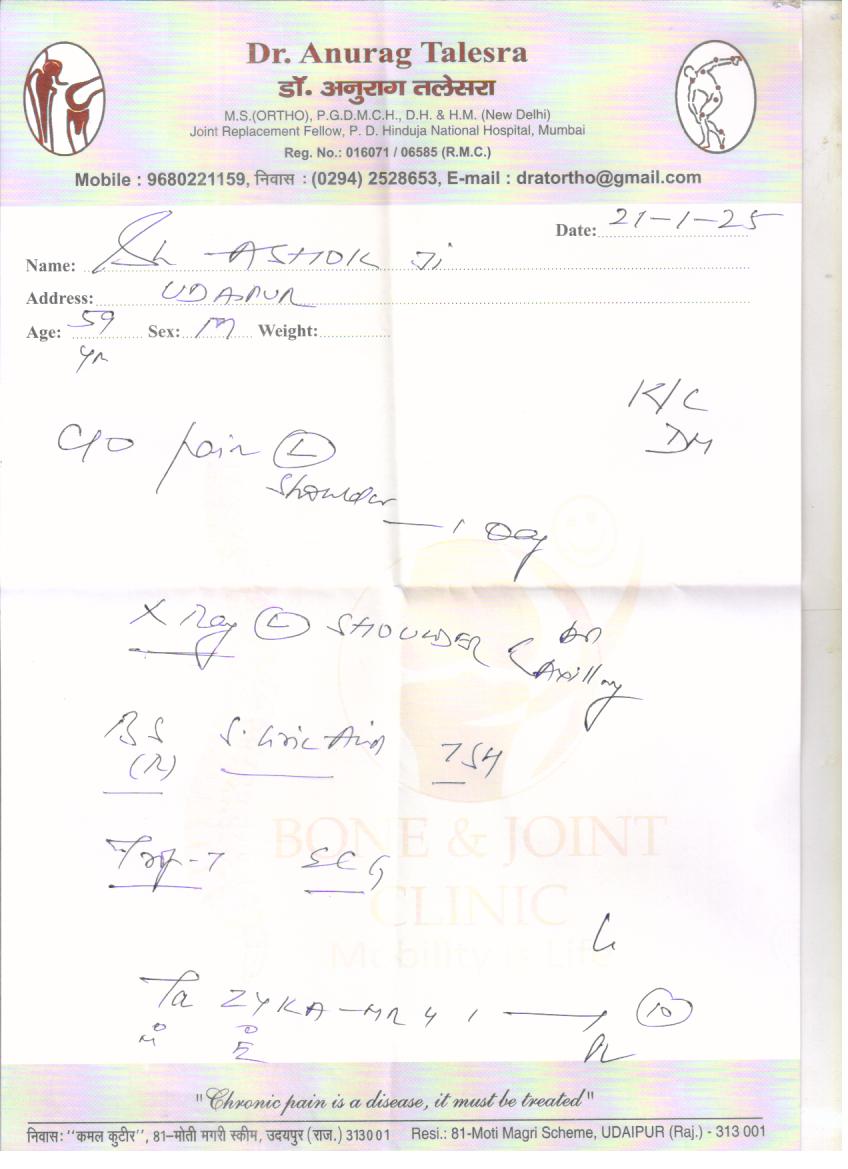 Dr. Anurag Talesra
डॉ. अनुराग तलेसरा
M.S.(ORTHO), P.G.D.M.C.H., D.H. & H.M. (New Delhi)
Joint Replacement Fellow, P. D. Hinduja National Hospital, Mumbai
Reg. No.: 016071 / 06585 (R.M.C.)
Mobile : 9680221159, निवास : (0294) 2528653, E-mail : dratortho@gmail.com
Date: 21-1-25
Name: Sh ASHOK Ji
Address: UDAIPUR
Age: 59 Sex: M Weight:
yr
K/C
DM
C/O pain (L)
Shoulder — 1 Day
X Ray (L) SHOULDER
Axillary
BS S. Uric Acid TSH
(R)
Trop-T ECG
BONE & JOINT
CLINIC
Mobility is Life
Ta ZYKA-MR 4 1 10
M E
"Chronic pain is a disease, it must be treated"
निवास: "कमल कुटीर", 81-मोती मगरी स्कीम, उदयपुर (राज.) 313001 Resi.: 81-Moti Magri Scheme, UDAIPUR (Raj.) - 313 001